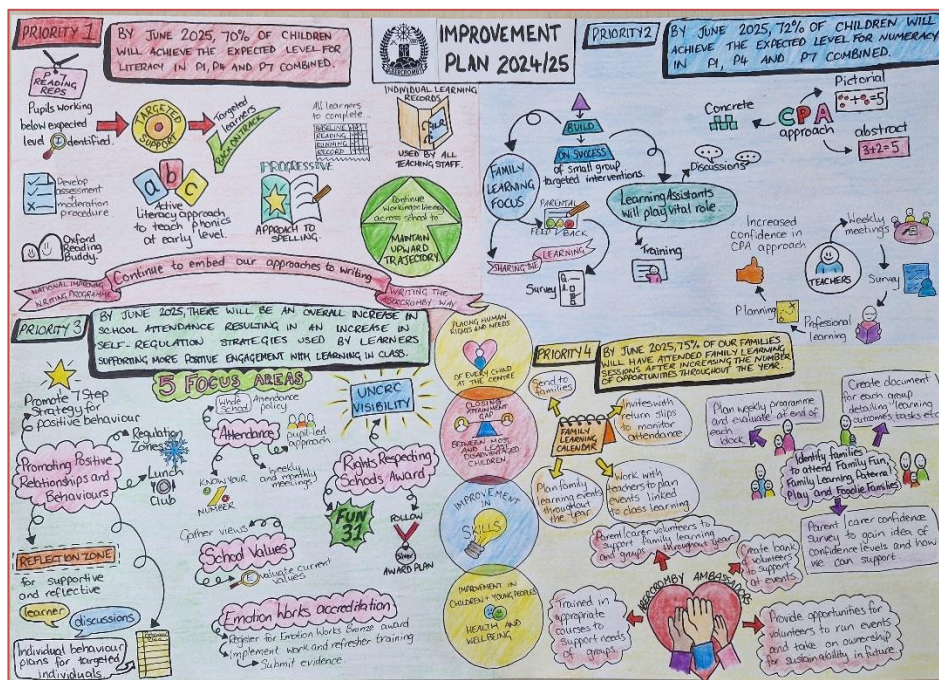 IMPROVEMENT
PLAN 2024/25
PRIORITY 1
BY JUNE 2025, 70% OF CHILDREN
WILL ACHIEVE THE EXPECTED LEVEL FOR
LITERACY IN P1, P4 AND P7 COMBINED.
READING
REPS
Pupils working
below expected
level
identified.
TARGETED
SUPPORT
Targeted
learners
BACK ON TRACK
All learners
to complete...
BASELINE
READING
RUNNING
RECORD
INDIVIDUAL LEARNING
RECORDS
USED BY ALL
TEACHING STAFF.
Develop
assessment
+
moderation
procedure.
a b c
Active
literacy approach
to teach phonics
at early level.
PROGRESSIVE
APPROACH TO
SPELLING.
Continue
working on literacy
across school to
MAINTAIN
UPWARD
TRAJECTORY.
Oxford
Reading
Buddy.
Continue to embed our approaches to writing
NATIONAL IMPROVING
WRITING PROGRAMME
WRITING THE
ABERCROMBY WAY
PRIORITY 2
BY JUNE 2025, 72% OF CHILDREN WILL
ACHIEVE THE EXPECTED LEVEL FOR NUMERACY
IN P1, P4 AND P7 COMBINED.
BUILD
ON SUCCESS
of small group
targeted interventions.
FAMILY
LEARNING
FOCUS
PARENTAL
FEEDBACK
SHARING THE
LEARNING
Survey
Learning Assistants
will play vital role.
Discussions
Training
Concrete
CPA
approach
Pictorial
=5
abstract
3+2=5
Increased
confidence in
CPA approach
Weekly
meetings
TEACHERS
Survey
Planning
Professional
learning
PRIORITY 3
BY JUNE 2025, THERE WILL BE AN OVERALL INCREASE IN
SCHOOL ATTENDANCE RESULTING IN AN INCREASE IN
SELF-REGULATION STRATEGIES USED BY LEARNERS
SUPPORTING MORE POSITIVE ENGAGEMENT WITH LEARNING IN CLASS.
5 FOCUS AREAS
Promote 7 Step
Strategy for
positive
behaviour
Promoting Positive
Relationships and
Behaviours
Regulation
Zones
Lunch
Club
REFLECTION ZONE
for supportive
and reflective
learner
discussions
Individual behaviour
plans for targeted
individuals.
Whole
School
Attendance
policy
Attendance
pupil-led
approach
KNOW YOUR
NUMBER
weekly
and monthly
meetings
UNCRC
VISIBILITY
Rights Respecting
Schools Award
FUN
31
FOLLOW
Silver
AWARD PLAN
Gather views
School Values
Evaluate current
values
Emotion Works accreditation
Register for Emotion Works Bronze award
Implement work and refresher training
Submit evidence
PLACING HUMAN
RIGHTS AND NEEDS
OF EVERY CHILD
AT THE CENTRE
CLOSING
ATTAINMENT
GAP
BETWEEN MOST
AND LEAST
DISADVANTAGED
CHILDREN.
IMPROVEMENT
IN
SKILLS
IMPROVEMENT IN
CHILDREN + YOUNG PEOPLE'S
HEALTH AND
WELLBEING
PRIORITY 4
BY JUNE 2025, 75% OF OUR FAMILIES
WILL HAVE ATTENDED FAMILY LEARNING
SESSIONS AFTER INCREASING THE NUMBER
OF OPPORTUNITIES THROUGHOUT THE YEAR.
Send to
families
FAMILY
LEARNING
CALENDAR
Invites with
return slips
to monitor
attendance
Plan family
learning events
throughout
the year
Work with
teachers to plan
events linked
to class learning
Plan weekly programme
and evaluate at end of
each
block
Create document
for each group
detailing learning
outcomes, tasks etc.
Identify families
to attend Family Fun,
Family Learning, Paternal
Play and Foodie Families
Parent/carer confidence
survey to gain idea of
confidence levels and how
we can support.
Parent/carer volunteers to
support family learning
and groups throughout year
Create bank
of volunteers
to support
at events.
ABERCROMBY AMBASSADORS
Trained in
appropriate
courses to
support needs
of groups.
Provide opportunities for
volunteers to run events
and take on ownership
for sustainability in future.